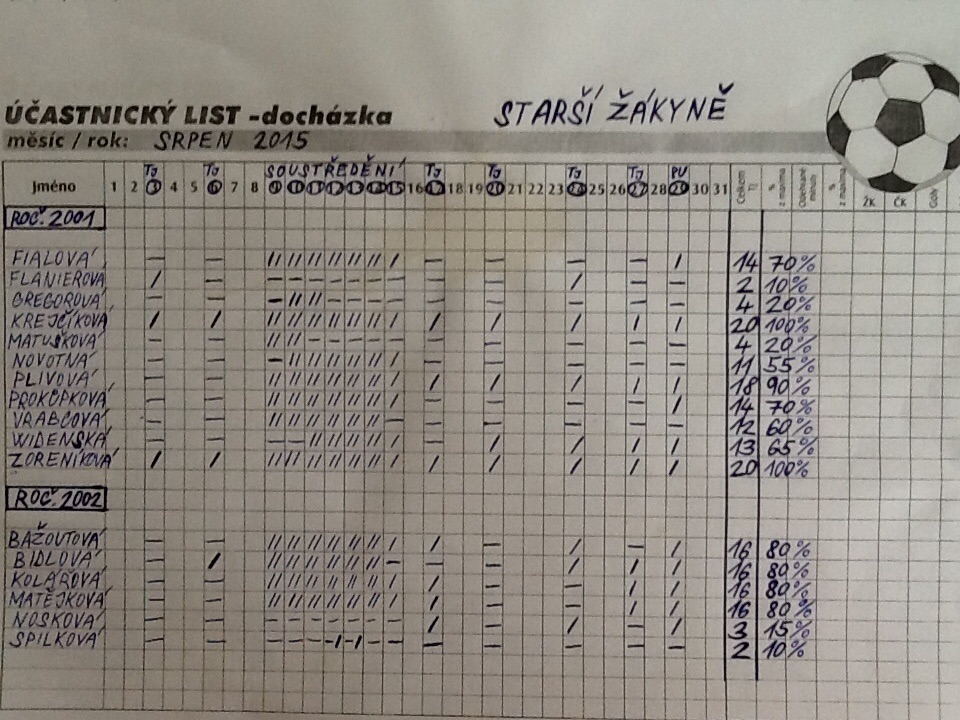 ÚČASTNICKÝ LIST -docházka STARŠÍ ŽÁKYNĚ
měsíc / rok: SRPEN 2015
TJ TJ SOUSTŘEDĚNÍ TJ TJ TJ TJ PU
Jméno 1 2 3 4 5 6 7 8 9 10 11 12 13 14 15 16 17 18 19 20 21 22 23 24 25 26 27 28 29 30 31 Celkem TJ % z maxima Odehrané minuty % z maxima ŽK ČK Góly
ROČ. 2001
FIALOVÁ 14 70%
FLANIEROVÁ 2 10%
GREGOROVÁ 4 20%
KREJČÍKOVÁ 20 100%
MATUŠKOVÁ 4 20%
NOVOTNÁ 11 55%
PLIVOVÁ 18 90%
PROKOPKOVÁ 14 70%
VRABCOVÁ 12 60%
WIDENSKÁ 13 65%
ZORENÍKOVÁ 20 100%
ROČ. 2002
BAŽOUTOVÁ 16 80%
BIDLOVÁ 16 80%
KOLÁŘOVÁ 16 80%
MATĚJKOVÁ 16 80%
NOSKOVÁ 3 15%
SPILKOVÁ 2 10%